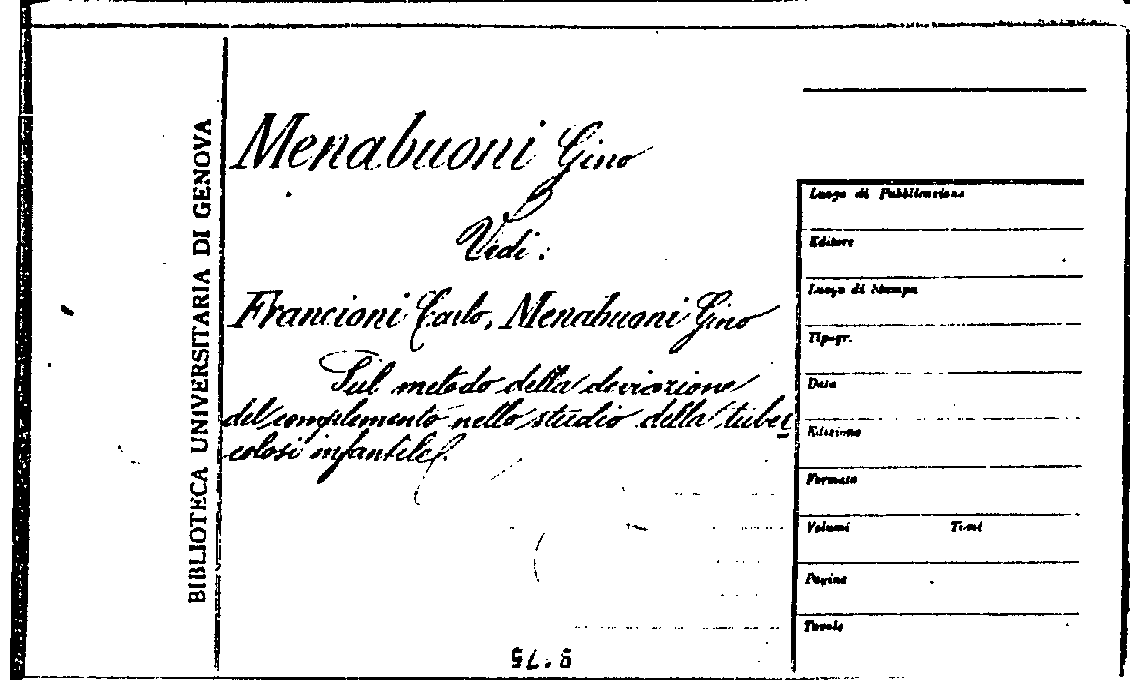 BIBLIOTECA UNIVERSITARIA DI GENOVA
Menabuoni Gino
Vedi:
Francioni Carlo, Menabuoni Gino
Sul metodo della deviazione
del complemento nello studio della tuber
colosi infantile.
Luogo di Pubblicazione
Editore
Luogo di Stampa
Tipogr.
Data
Edizione
Formato
Volumi Tomi
Pagine
Tavole